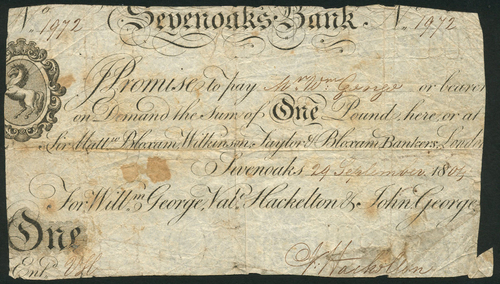 No. 1972 Sevenoaks Bank. No. 1972
I Promise to pay Mr. Wm. George or bearer
on Demand the Sum of One Pound, here or at
Sir Matt.w Bloxam, Wilkinson, Taylor & Bloxam Bankers, London
Sevenoaks 29 September 180
For Will.m George, Val. Hackelton & John George
One
Ent.d